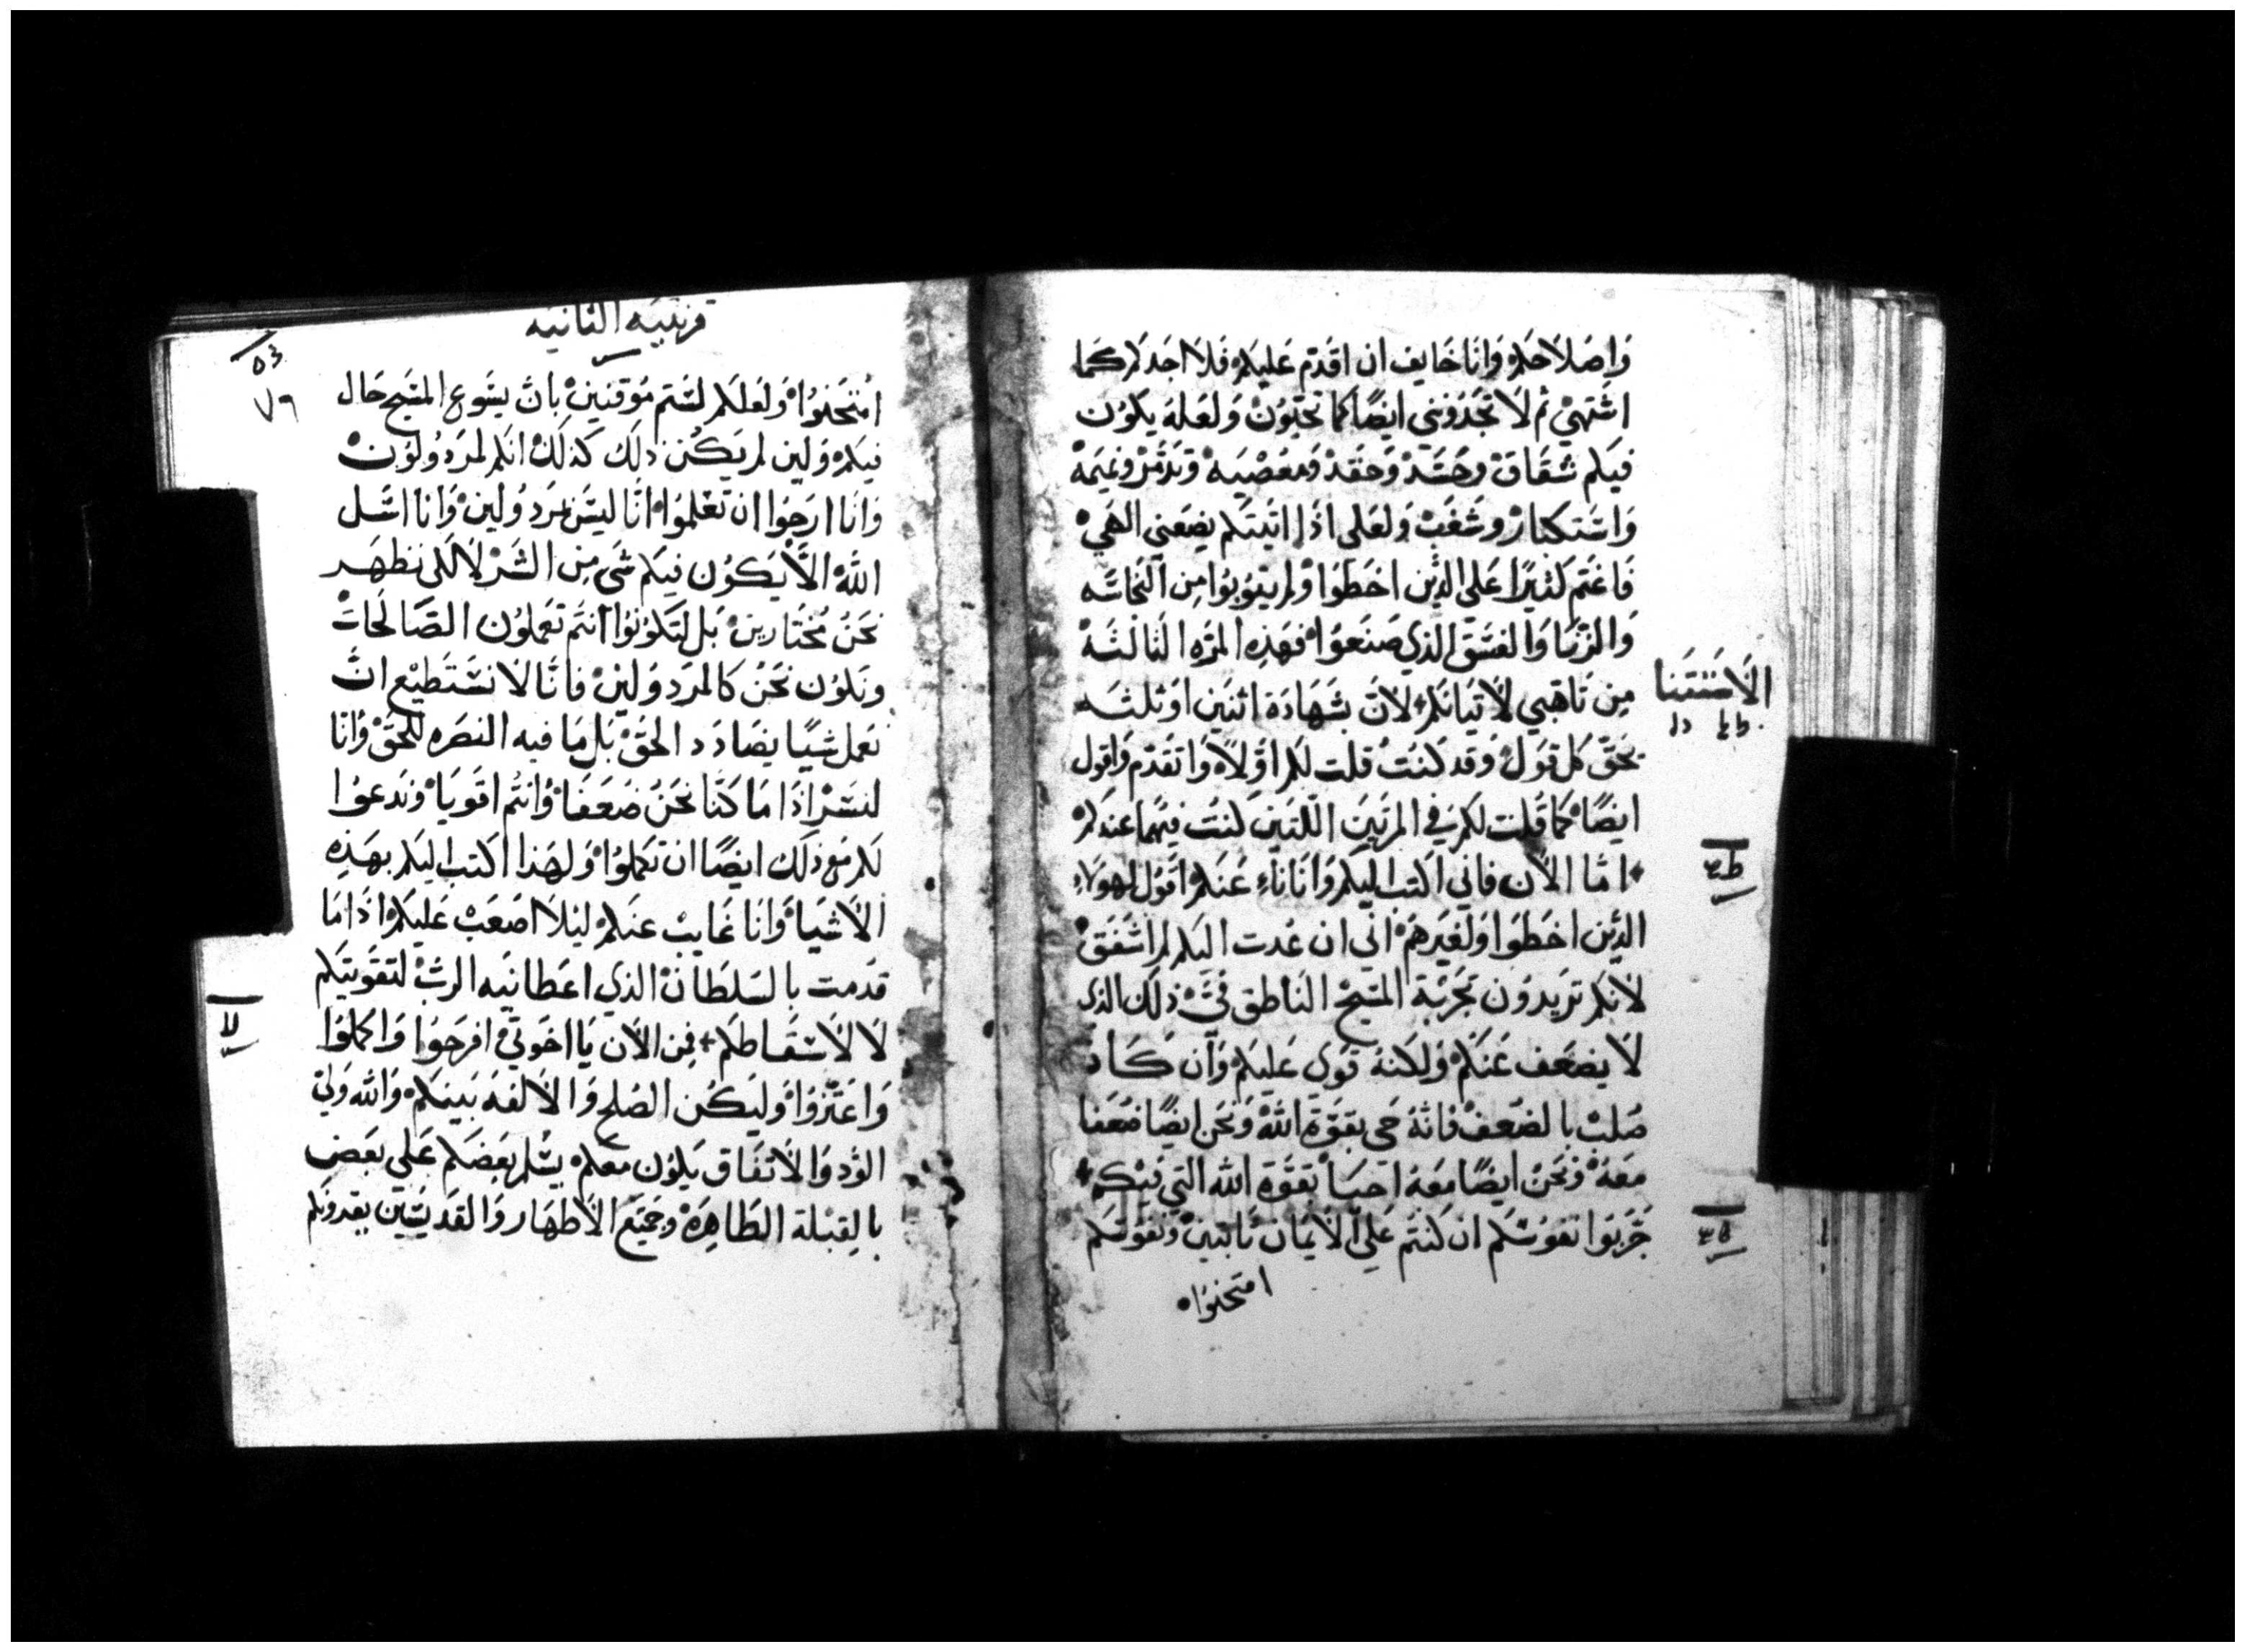 وَاصَلاَحكم وَانَا خَايف ان اقدَم عَليكم فَلا اجَدكم كمَا
اشَتهيْ ثم لاَ تجَدُوننى ايضًا كما تحَبّوُنْ وَلعَله يكوُن
فيكم شقَاقْ وحَسَدْ وَحقَدْ وَمعَصْيَهْ وَتذَمّرْ ونميَمهْ
وَاسَتكبَارْ وشَغَبْ وَلعَلى اذَا اتيَتكم يضَعَنى الهَيْ
فَاغتَم كثيرًا عَلى الذين اخطَوَا وْلم يتوُبُوا مِن النجَاسَه
وَالزنَا وَالفسَق الذي صَنعَوَا فهَذِه المَرَّه الثالثَهْ
مِن تاهّبي لاَتيَانكم لاَن بشهَادَة اثنيَن اوَثلثَه
يحَقّ كل قوَلْ وَقد كنتُ قلت لكم اوَّلاً وَاتقدَم وَاقول
ايضًا كمَا قُلت لكم في المرَّتيَن اللتيَن كنتُ فيهمَا عندكمْ
امّا الاَن فاني اكتب اليكم وَانَا نَاءٍ عَنكم اقوُل لهوَلاءِ
الذين اخطَوا وَلغيَرهمْ اني ان عُدت اليكم لم اشفَقْ
لاَنكم ترَيدُون تجَربَة المسَيحْ الناطق فيَّ ذلكَ الذى
لاَ يضعَف عَنكمْ وَلكنهُ قوَي عَليكمْ وَان كَانَ
صُلبْ بالضعَفْ فانهُ حَي بقوَّة اللهْ وَنحَن ايضًا ضعَفا
معَهُ وَنحَنْ ايضًا معَهُ احيَا بقوَّة الله التي فيَكم
جَرّبوَا نفوُسَكم ان كنتم عَلى الاَيمَان ثابتينْ وَنفوُسَكم
امتحنوُا
الاَسَتثنا
قرنتيَه الثانيَه
٥٣
٧٩
امُتَحنوُا وَلعَلكم لسَتم موُقنينْ باَن يسَوع المسَيح حَال
فيكم وَلين لم يَكُن ذلكَ كذلكَ انكم لمرَدوُلوُنْ
وَانَا ارَجوُا ان تعَلموُا انَّا ليسَ بمرَدوُلينْ وَانا اسَل
اللهْ الاَّ يَكوُن فيكم شَي مِن الشَرْ لاَ لكى نظهَر
نحَنُ مُختَارينْ بَل لتكوُنوُا انتم تعَملوُن الصَالحَاتْ
ونكوُن نحَنُ كالمرَدوُلينْ فانَّا لاَ نسَتطيْع انْ
نعَمل شيًا يضَادَد الحَقْ بَل مَا فيه النصَره للحَقْ وَانَا
لنسَرْ اذَا مَا كنَّا نحَنُ ضعَفَا وَانتُم اقوَيَا وَندعوُا
لكم معَ ذلكَ ايضًا ان تكملوُا وَلهَذا اكتب اليكم بهَذِه
الاَشيَا وَانَا غَايبْ عنكم ليلاَ اصَعَبْ عَليكم اذَا مَا
قدَمت بالسَلطَانْ الذي اعطَانيَه الربْ لتقوَيتكم
لاَ لاَسَقَاطكم فمِن الاَن يَا اخوَتي افرحَوُا وَاكملوُا
وَاعتَزوُا وَليَكُن الصُلح وَالاَلفه بَينكمْ وَالله وَليّ
الوُد وَالاَتفَاق يكوُن معَكمْ يسَلم بعَضكم عَلى بعَض
بالِقبْلة الطَاهِرَهْ وجَميَع الاَطهَار وَالقديسَيَن يقروَنكم
لا